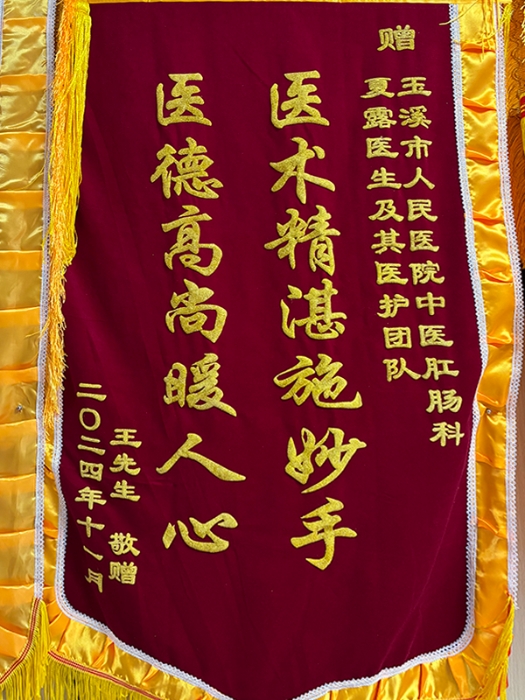 赠
玉溪市人民医院中医肛肠科
夏露医生及其医护团队
医术精湛施妙手
医德高尚暖人心
王先生 敬赠
二〇二四年十一月